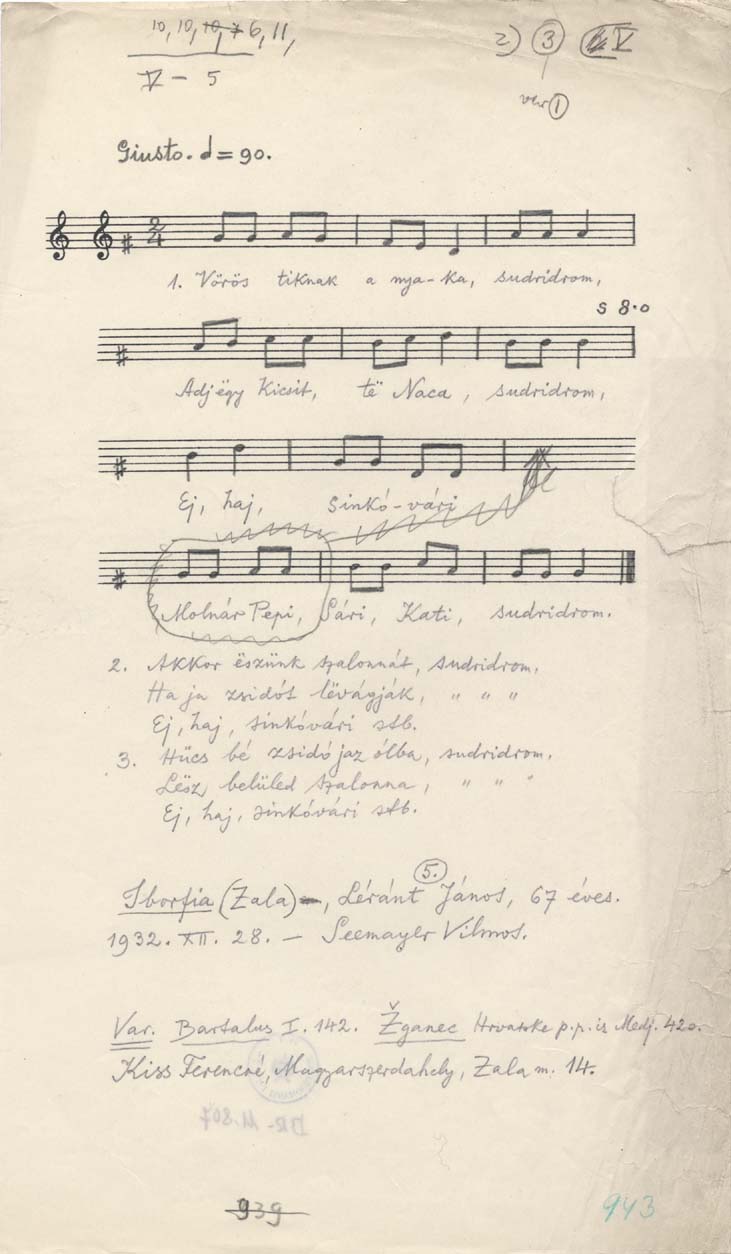 10, 10, 10, 7 6, 11,
V - 5
2) 3 V
var 1
Giusto. d = 90.
2 4
1. Vörös tiknak a nya-ka, sudridrom,
s 8.o
Adj ëgy kicsit, të Naca, sudridrom,
Ej, haj, sinkó-vári
Molnár Pepi, Sári, Kati, sudridrom.
2. Akkor ëszünk szalonnát, sudridrom,
Ha ja zsidót lëvágják, " " "
Ej, haj, sinkóvári stb.
3. Hücs bé zsidó jaz ólba, sudridrom,
Lësz belüled szalonna, " " "
Ej, haj, sinkóvári stb.
5.
Iborfia (Zala), Léránt János, 67 éves.
1932. XII. 28. - Seemayer Vilmos.
Var. Bartalus I. 142. Žganec Hrvatske p.p. iz Medj. 420.
Kiss Ferencné, Magyarszerdahely, Zala m. 14.
939
943